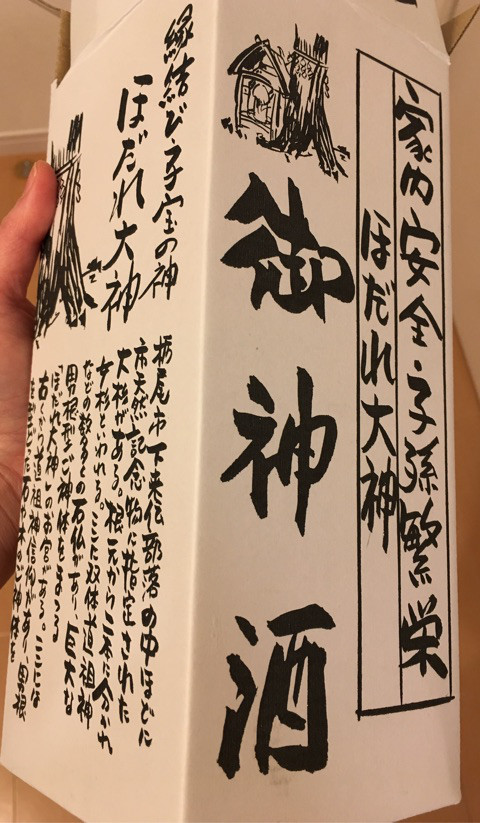 家内安全・子孫繁栄
ほだれ大神
御神酒
縁結び・子宝の神
ほだれ大神
栃尾市下来伝部落の中ほどに
市天然記念物に指定された
大杉がある。根元から二本に分かれ
女杉といわれる。ここに双体道祖神
などの数多くの石仏があり、巨大な
男根型ご神体をまつる
「ほだれ大神」のお宮がある。ここは
古くから道祖神信仰があり、男根